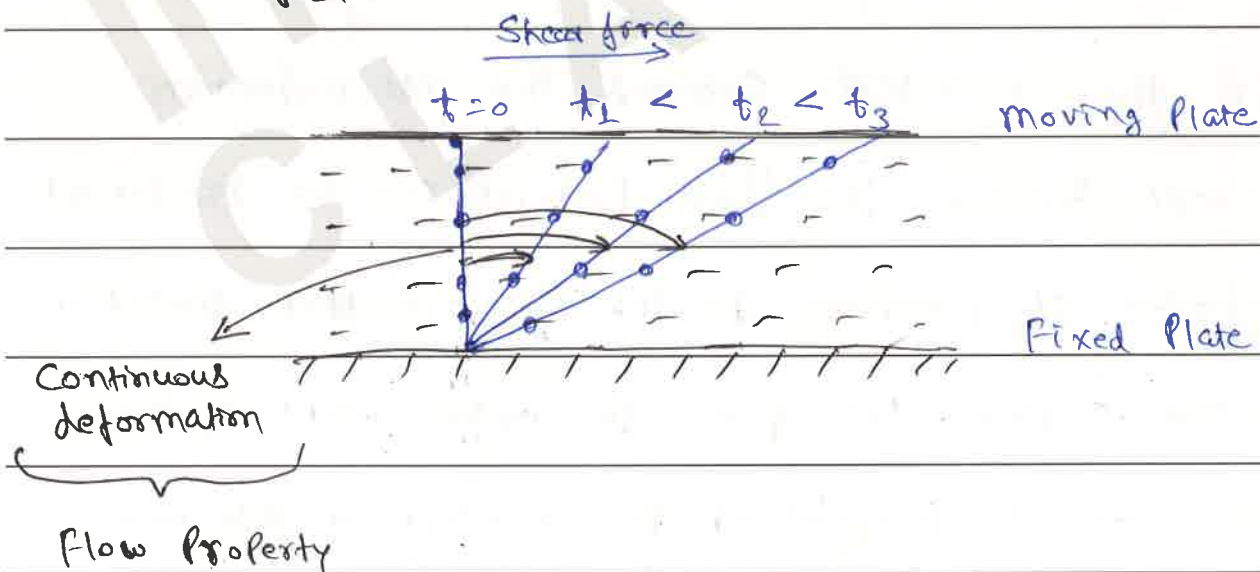 Shear force
t=0 t1 < t2 < t3
Moving Plate
Fixed Plate
Continuous
deformation
Flow Property